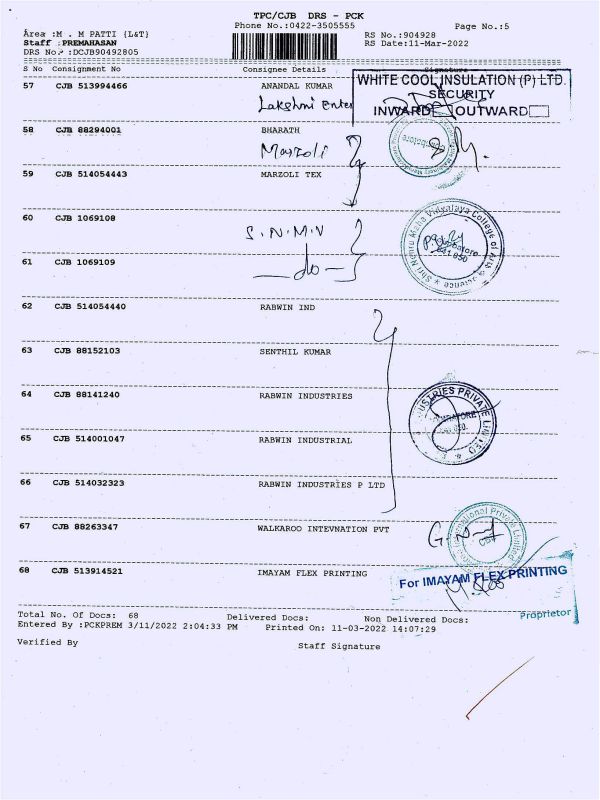 TPC/CJB DRS - PCK
Phone No.:0422-3505555
Page No.:5
Area :M . M PATTI {L&T}
Staff :PREMAHASAN
DRS No.:DCJB90492805
RS No.:904928
RS Date:11-Mar-2022
S No Consignment No Consignee Details Signature
57 CJB 513994466 ANANDAL KUMAR
Lakshmi Enter
WHITE COOL INSULATION (P) LTD.
SECURITY
INWARD OUTWARD
58 CJB 88294001 BHARATH
Marzoli
59 CJB 514054443 MARZOLI TEX
60 CJB 1069108
S.N.M.V
Shri Nehru Maha Vidyalaya College of Arts & Science
61 CJB 1069109
-do-
62 CJB 514054440 RABWIN IND
63 CJB 88152103 SENTHIL KUMAR
64 CJB 88141240 RABWIN INDUSTRIES
65 CJB 514001047 RABWIN INDUSTRIAL
USTRIES PRIVATE LIMITED
66 CJB 514032323 RABWIN INDUSTRIES P LTD
67 CJB 88263347 WALKAROO INTEVNATION PVT
International Private Limited
68 CJB 513914521 IMAYAM FLEX PRINTING
For IMAYAM FLEX PRINTING
Proprietor
Total No. Of Docs: 68 Delivered Docs: Non Delivered Docs:
Entered By :PCKPREM 3/11/2022 2:04:33 PM Printed On: 11-03-2022 14:07:29
Verified By Staff Signature